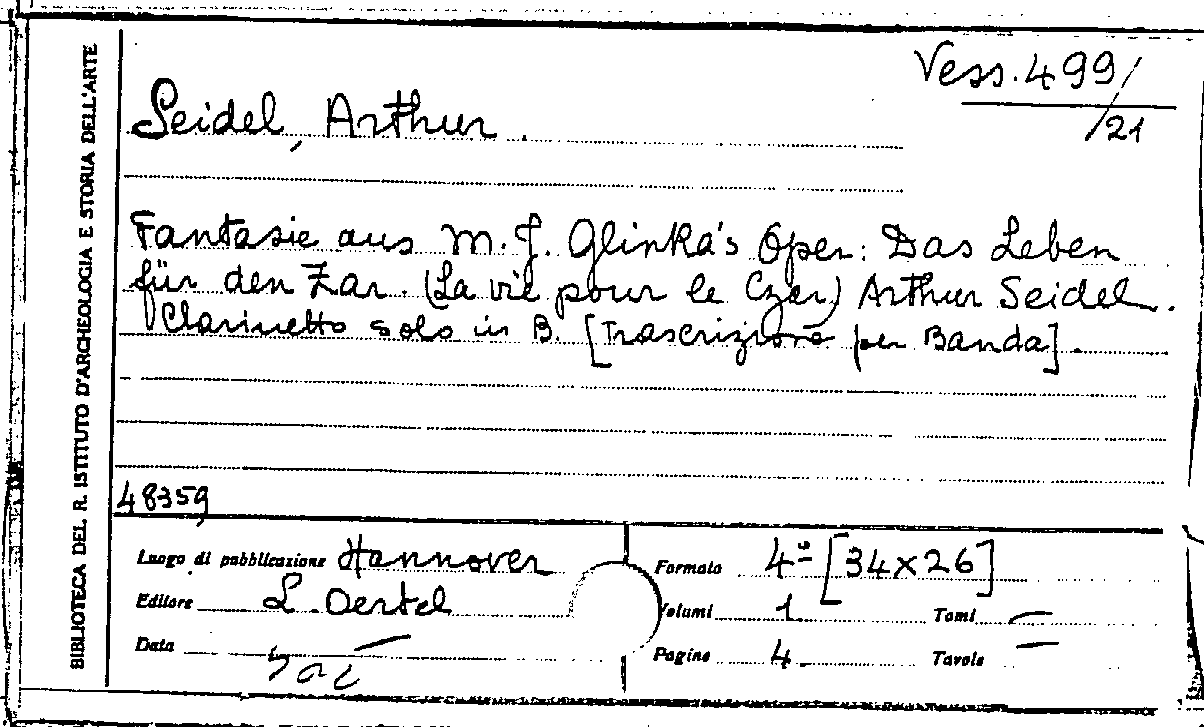 BIBLIOTECA DEL R. ISTITUTO D'ARCHEOLOGIA E STORIA DELL'ARTE
Vess. 499/
/21
Seidel, Arthur.
Fantasie aus M. J. Glinka's Oper: Das Leben
für den Zar. (La vie pour le Czar) Arthur Seidel.
Clarinetto solo in B. [Trascrizione per Banda].
48359
Luogo di pubblicazione Hannover
Editore L. Oertel
Data
Formato 4º [34x26]
Volumi 1 Tomi —
Pagine 4. Tavole —